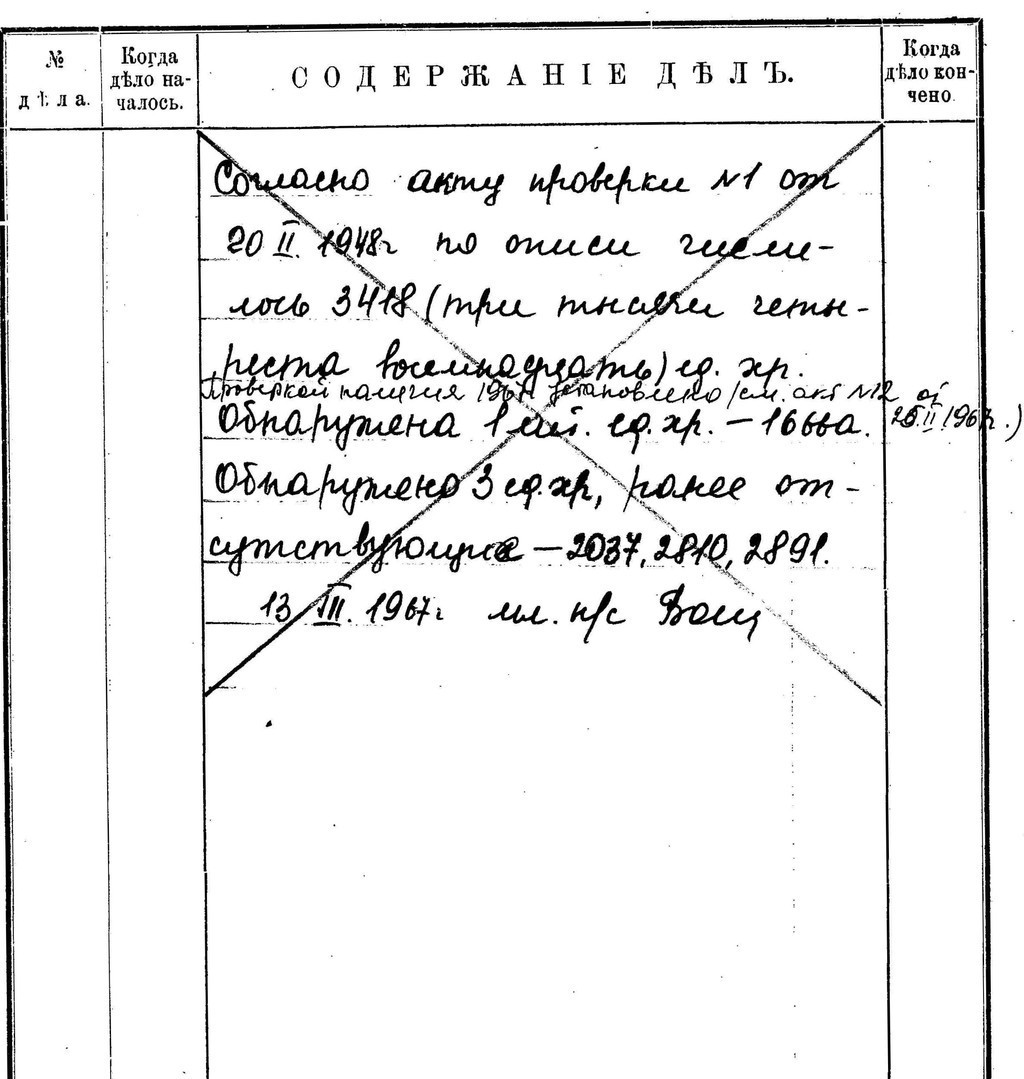 №
дѣла.
Когда
дѣло на-
чалось.
СОДЕРЖАНІЕ ДѢЛЪ.
Когда
дѣло кон-
чено.
Согласно акту проверки №1 от
20 II. 1948г по описи числи-
лось 3418 (три тысячи четы-
реста восемнадцать) ед. хр.
Проверкой наличия 1967г установлено /см. акт №12 от
25.II 1967г.)
Обнаружена 1 лит. ед. хр. – 1666а.
Обнаружено 3 ед. хр, ранее от-
сутствующие – 2037, 2810, 2891.
13 III. 1967г мл. н/с